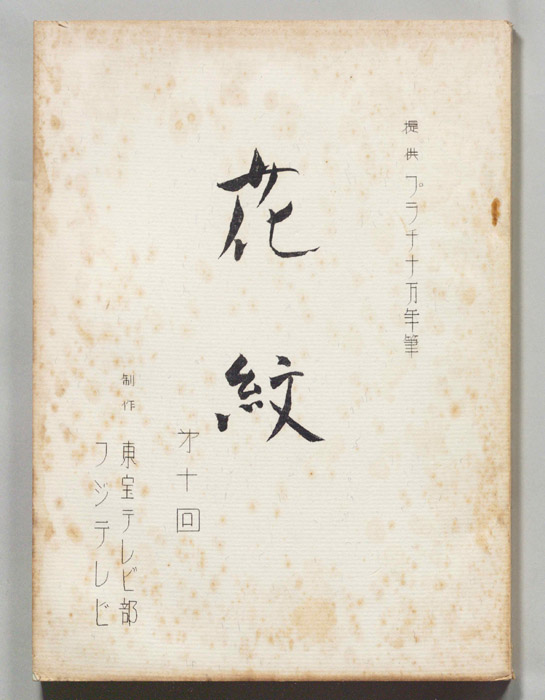 提供 プラチナ万年筆
花紋
第十回
制作 東宝テレビ部
フジテレビ